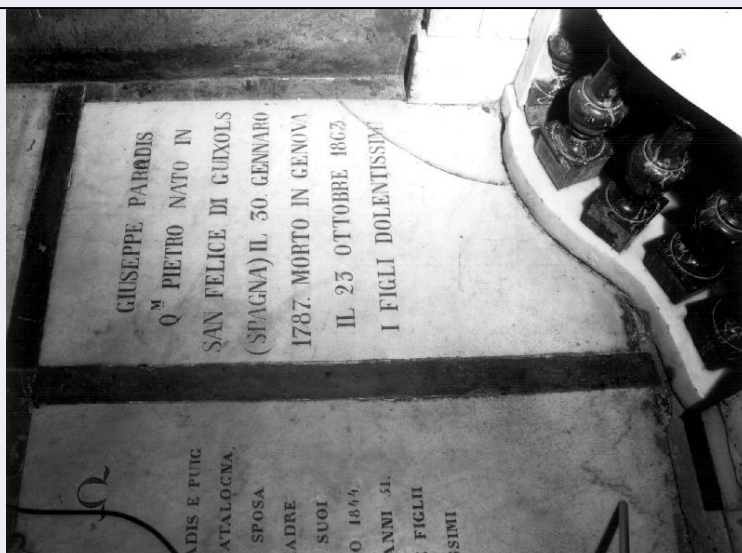 GIUSEPPE PARODIS
Qᴹ PIETRO NATO IN
SAN FELICE DI GUIXOLS
(SPAGNA) IL 30. GENNARO
1787. MORTO IN GENOVA
IL 23 OTTOBRE 1863.
I FIGLI DOLENTISSIMI
Ω
ADIS E PUIG
ATALOGNA.
SPOSA
ADRE
SUOI
O 1844.
ANNI 51.
FIGLII
SSIMI